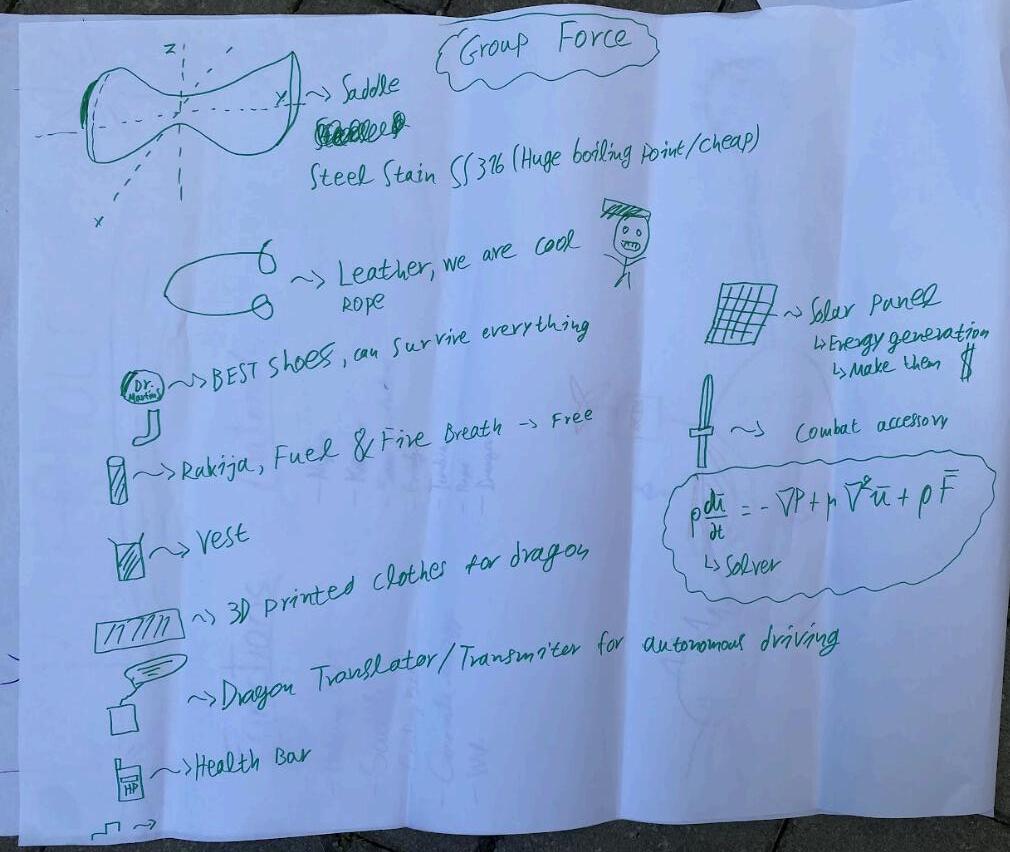 Group Force
z
y
x
Saddle
Steel Stain SS316 (Huge boiling point/cheap)
Leather, we are cool
ROPE
Dr.
Martins
BEST shoes, can survive everything
Rakija, Fuel & Fire Breath → Free
Vest
3D printed clothes for dragon
Dragon Translator/Transmiter for autonomous driving
HP
Health Bar
Solar Panel
↳ Energy generation
↳ Make them $
Combat accessory
ρ dū/dt = - ∇P + μ ∇²ū + ρ F̄
↳ Solver